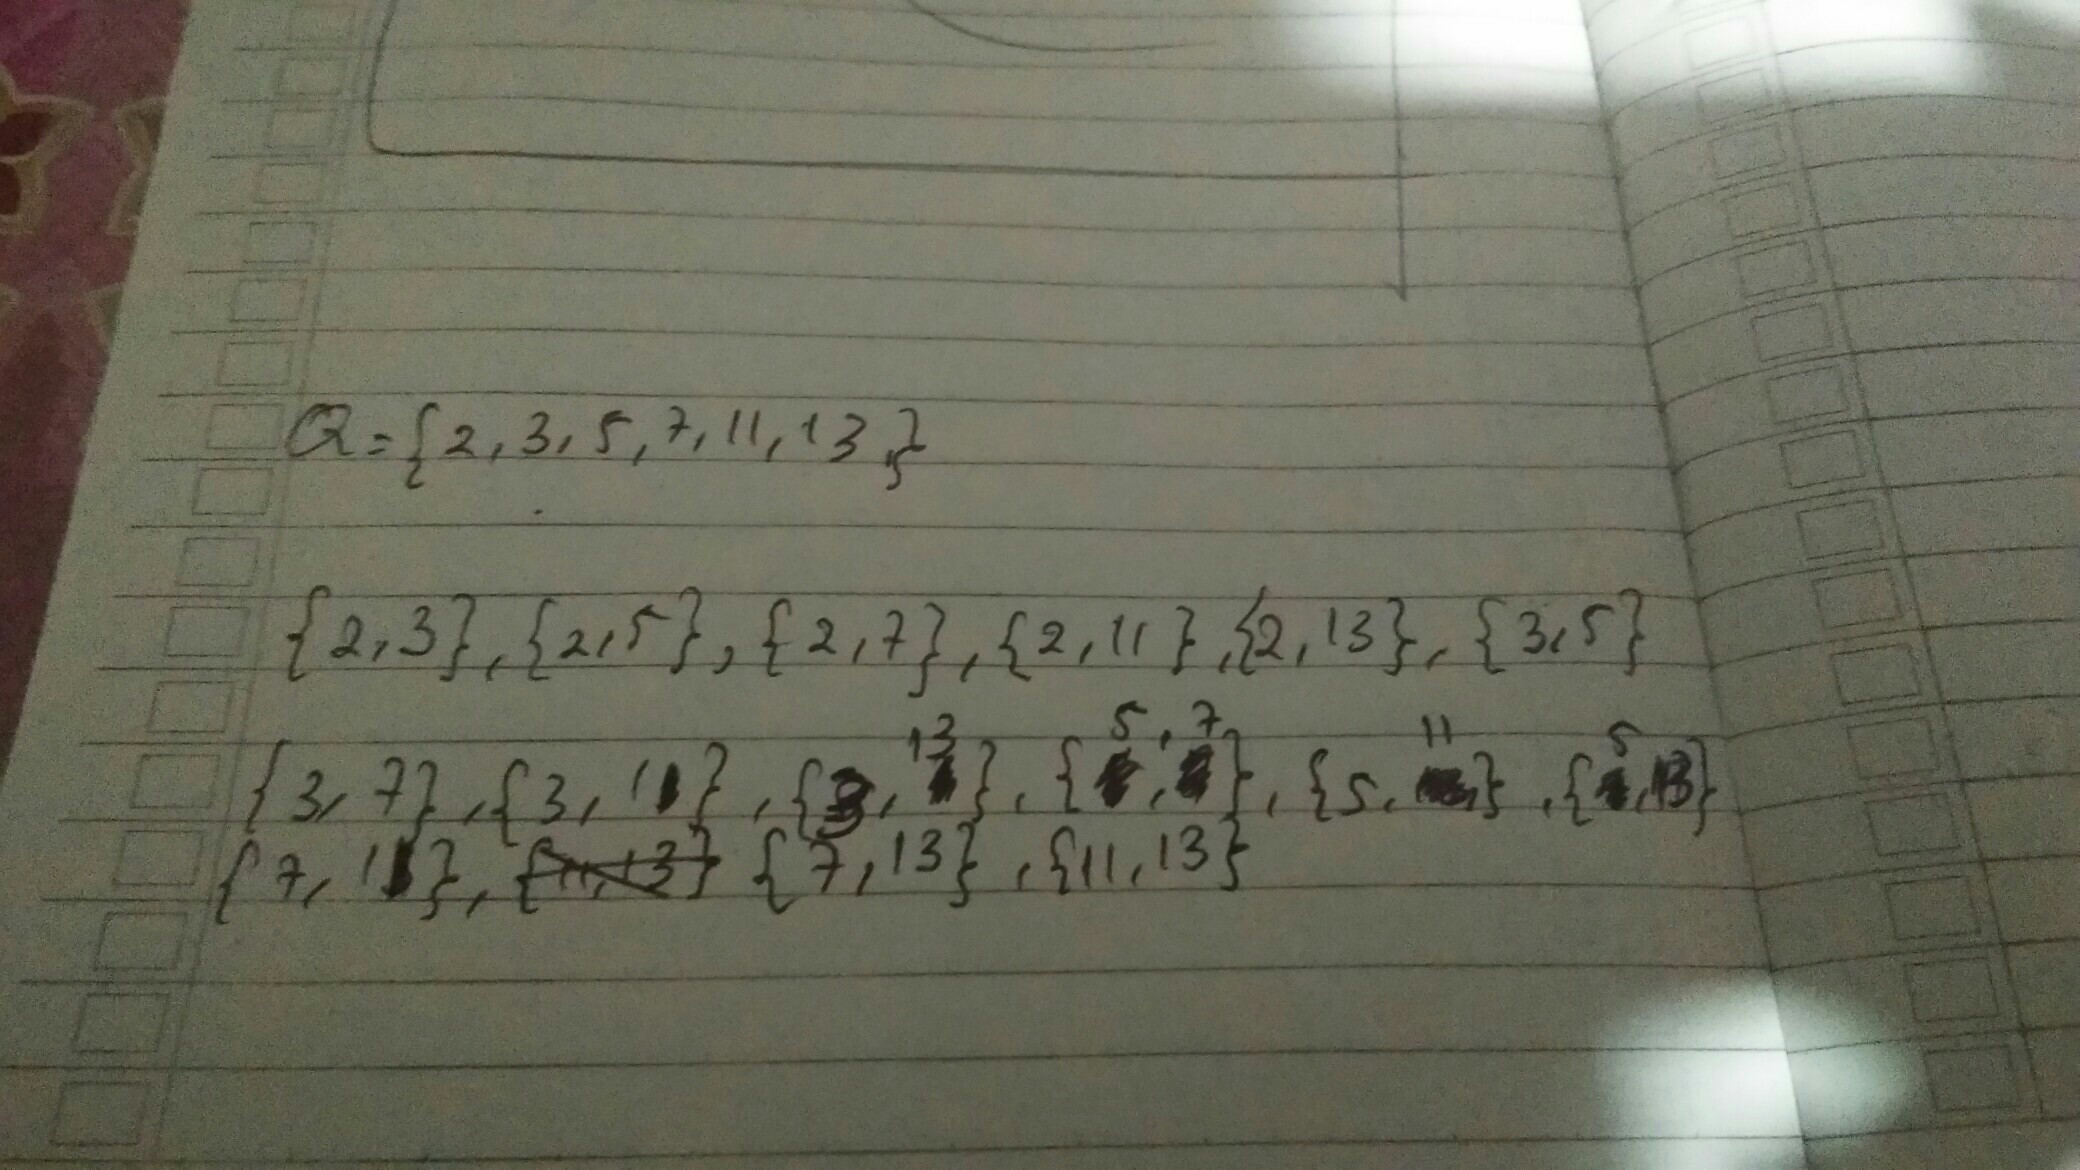 Q={2,3,5,7,11,13}
{2,3},{2,5},{2,7},{2,11},{2,13},{3,5}
{3,7},{3,11},{3,13},{5,7},{5,11},{5,13}
{7,11},{7,13},{11,13}